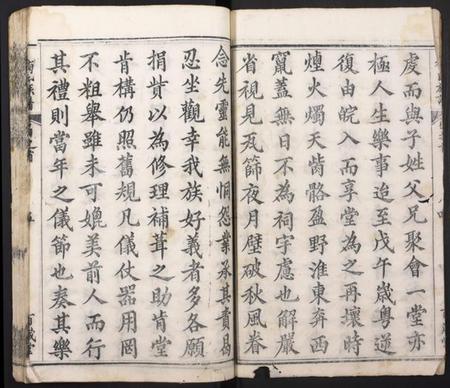 虔而與子姓父兄聚會一堂亦
極人生樂事迨至戊午歲粵逆
復由皖入而享堂為之再壞時
煙火燭天骼盈野淮東奔西
竄蓋無日不為祠宇慮也解嚴
省視見瓦篩夜月壁破秋風眷
念先靈能無恫怨業承其責曷
忍坐觀幸我族好義者多各願
捐貲以為修理補葺之助肯堂
肯構仍照舊規凡儀仗器用罔
不粗舉雖未可媲美前人而行
其禮則當年之儀節也奏其樂